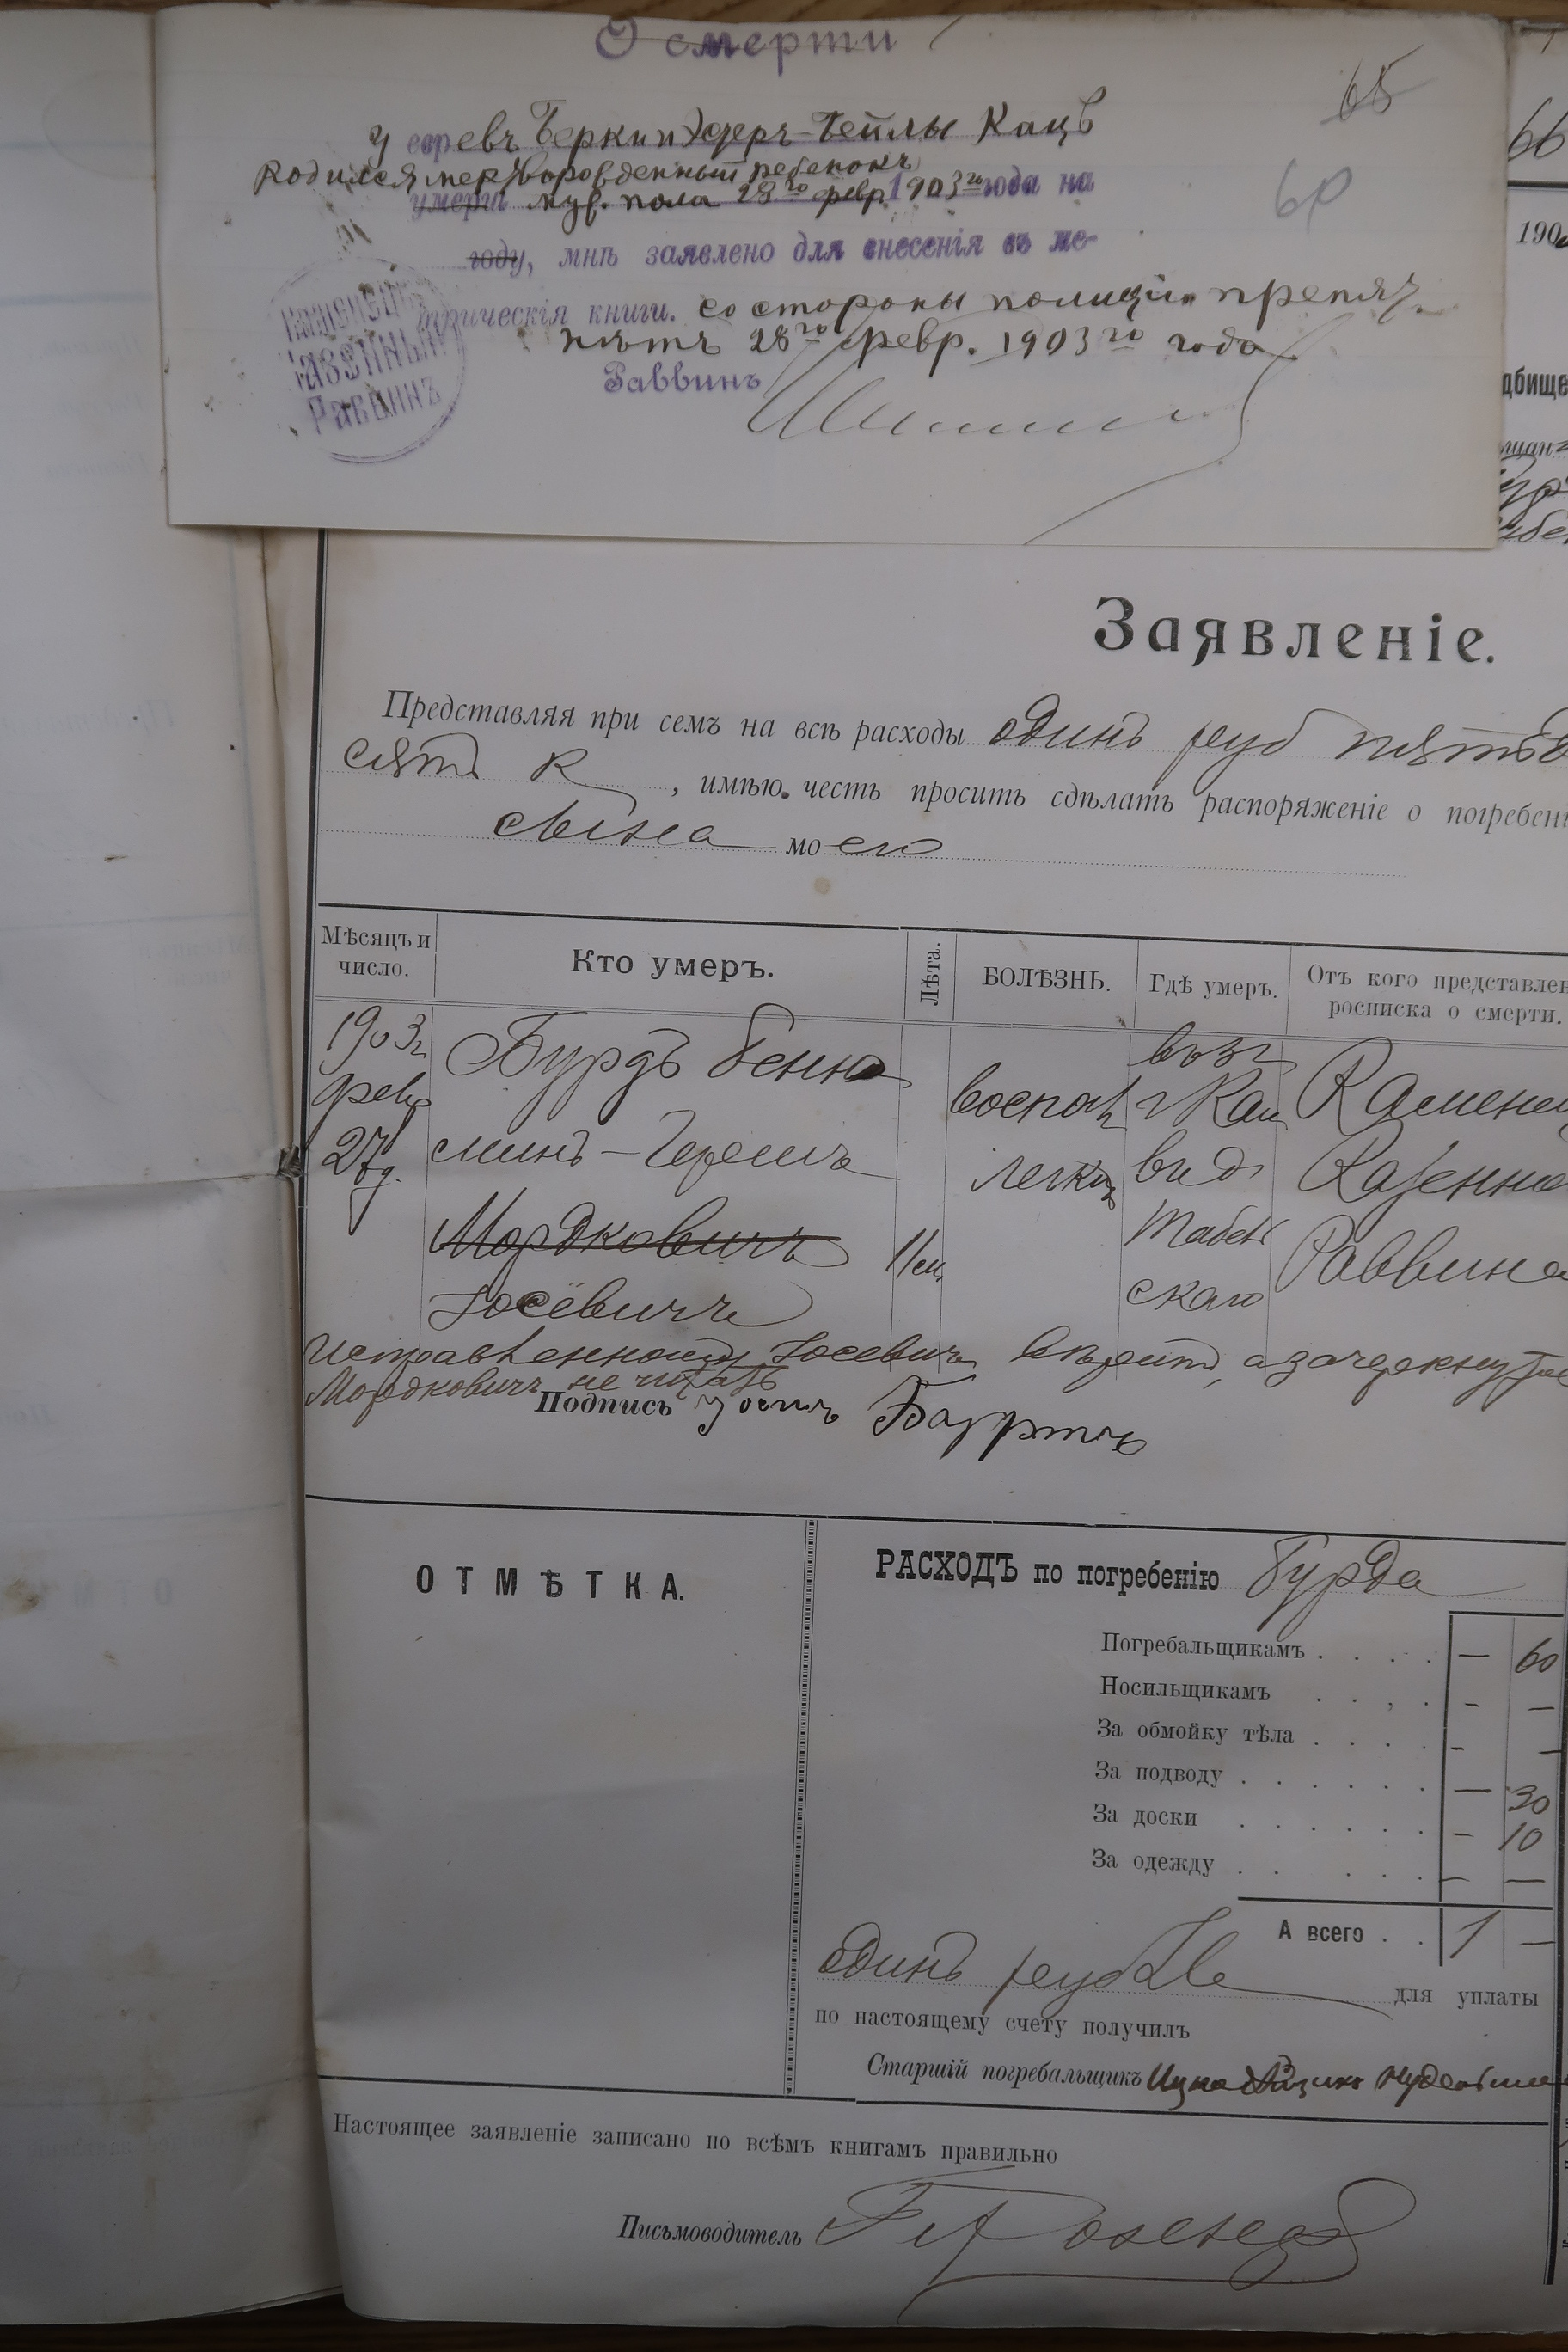 О смерти
65
60
у евреевъ Берки и Эстеръ-Бейлы Кацъ
Родился мертворожденный ребенокъ
умеръ муж. пола 28го февр. 1903го года на
году, мнѣ заявлено для внесенія въ ме-
трическія книги. со стороны полиціи препят.
нѣтъ 28го февр. 1903го года
Раввинъ
Каменецъ
Казенный
Раввинъ
66
190
дбище
Заявленіе.
Представляя при семъ на всѣ расходы одинъ руб пятьде
сятъ к , имѣю честь просить сдѣлать распоряженіе о погребен
сына моего
Мѣсяцъ и число.
Кто умеръ.
Лѣта.
БОЛѢЗНЬ.
Гдѣ умеръ.
Отъ кого представлен
росписка о смерти.
1903 г.
фев
27 д.
Бурдъ Бенья
минъ-Гершъ
Мордковичъ
Іосевичъ
11 м.
воспал
легких
г Кам
Каменец
Казенно
Раввина
Исправленному Іосевичъ вѣрить, а зачеркнутое
Мордковичъ не читать
Подпись Іосипъ Бауртъ
ОТМѢТКА.
РАСХОДЪ по погребенію Бурда
Погребальщикамъ . . . . — 60
Носильщикамъ . . . . - —
За обмойку тѣла . . . . - —
За подводу . . . . . . — 30
За доски . . . . . . - 10
За одежду . . . . . — —
А всего . . 1 —
одинъ рубль для уплаты
по настоящему счету получилъ
Старшій погребальщикъ Нудельма
Настоящее заявленіе записано по всѣмъ книгамъ правильно
Письмоводитель